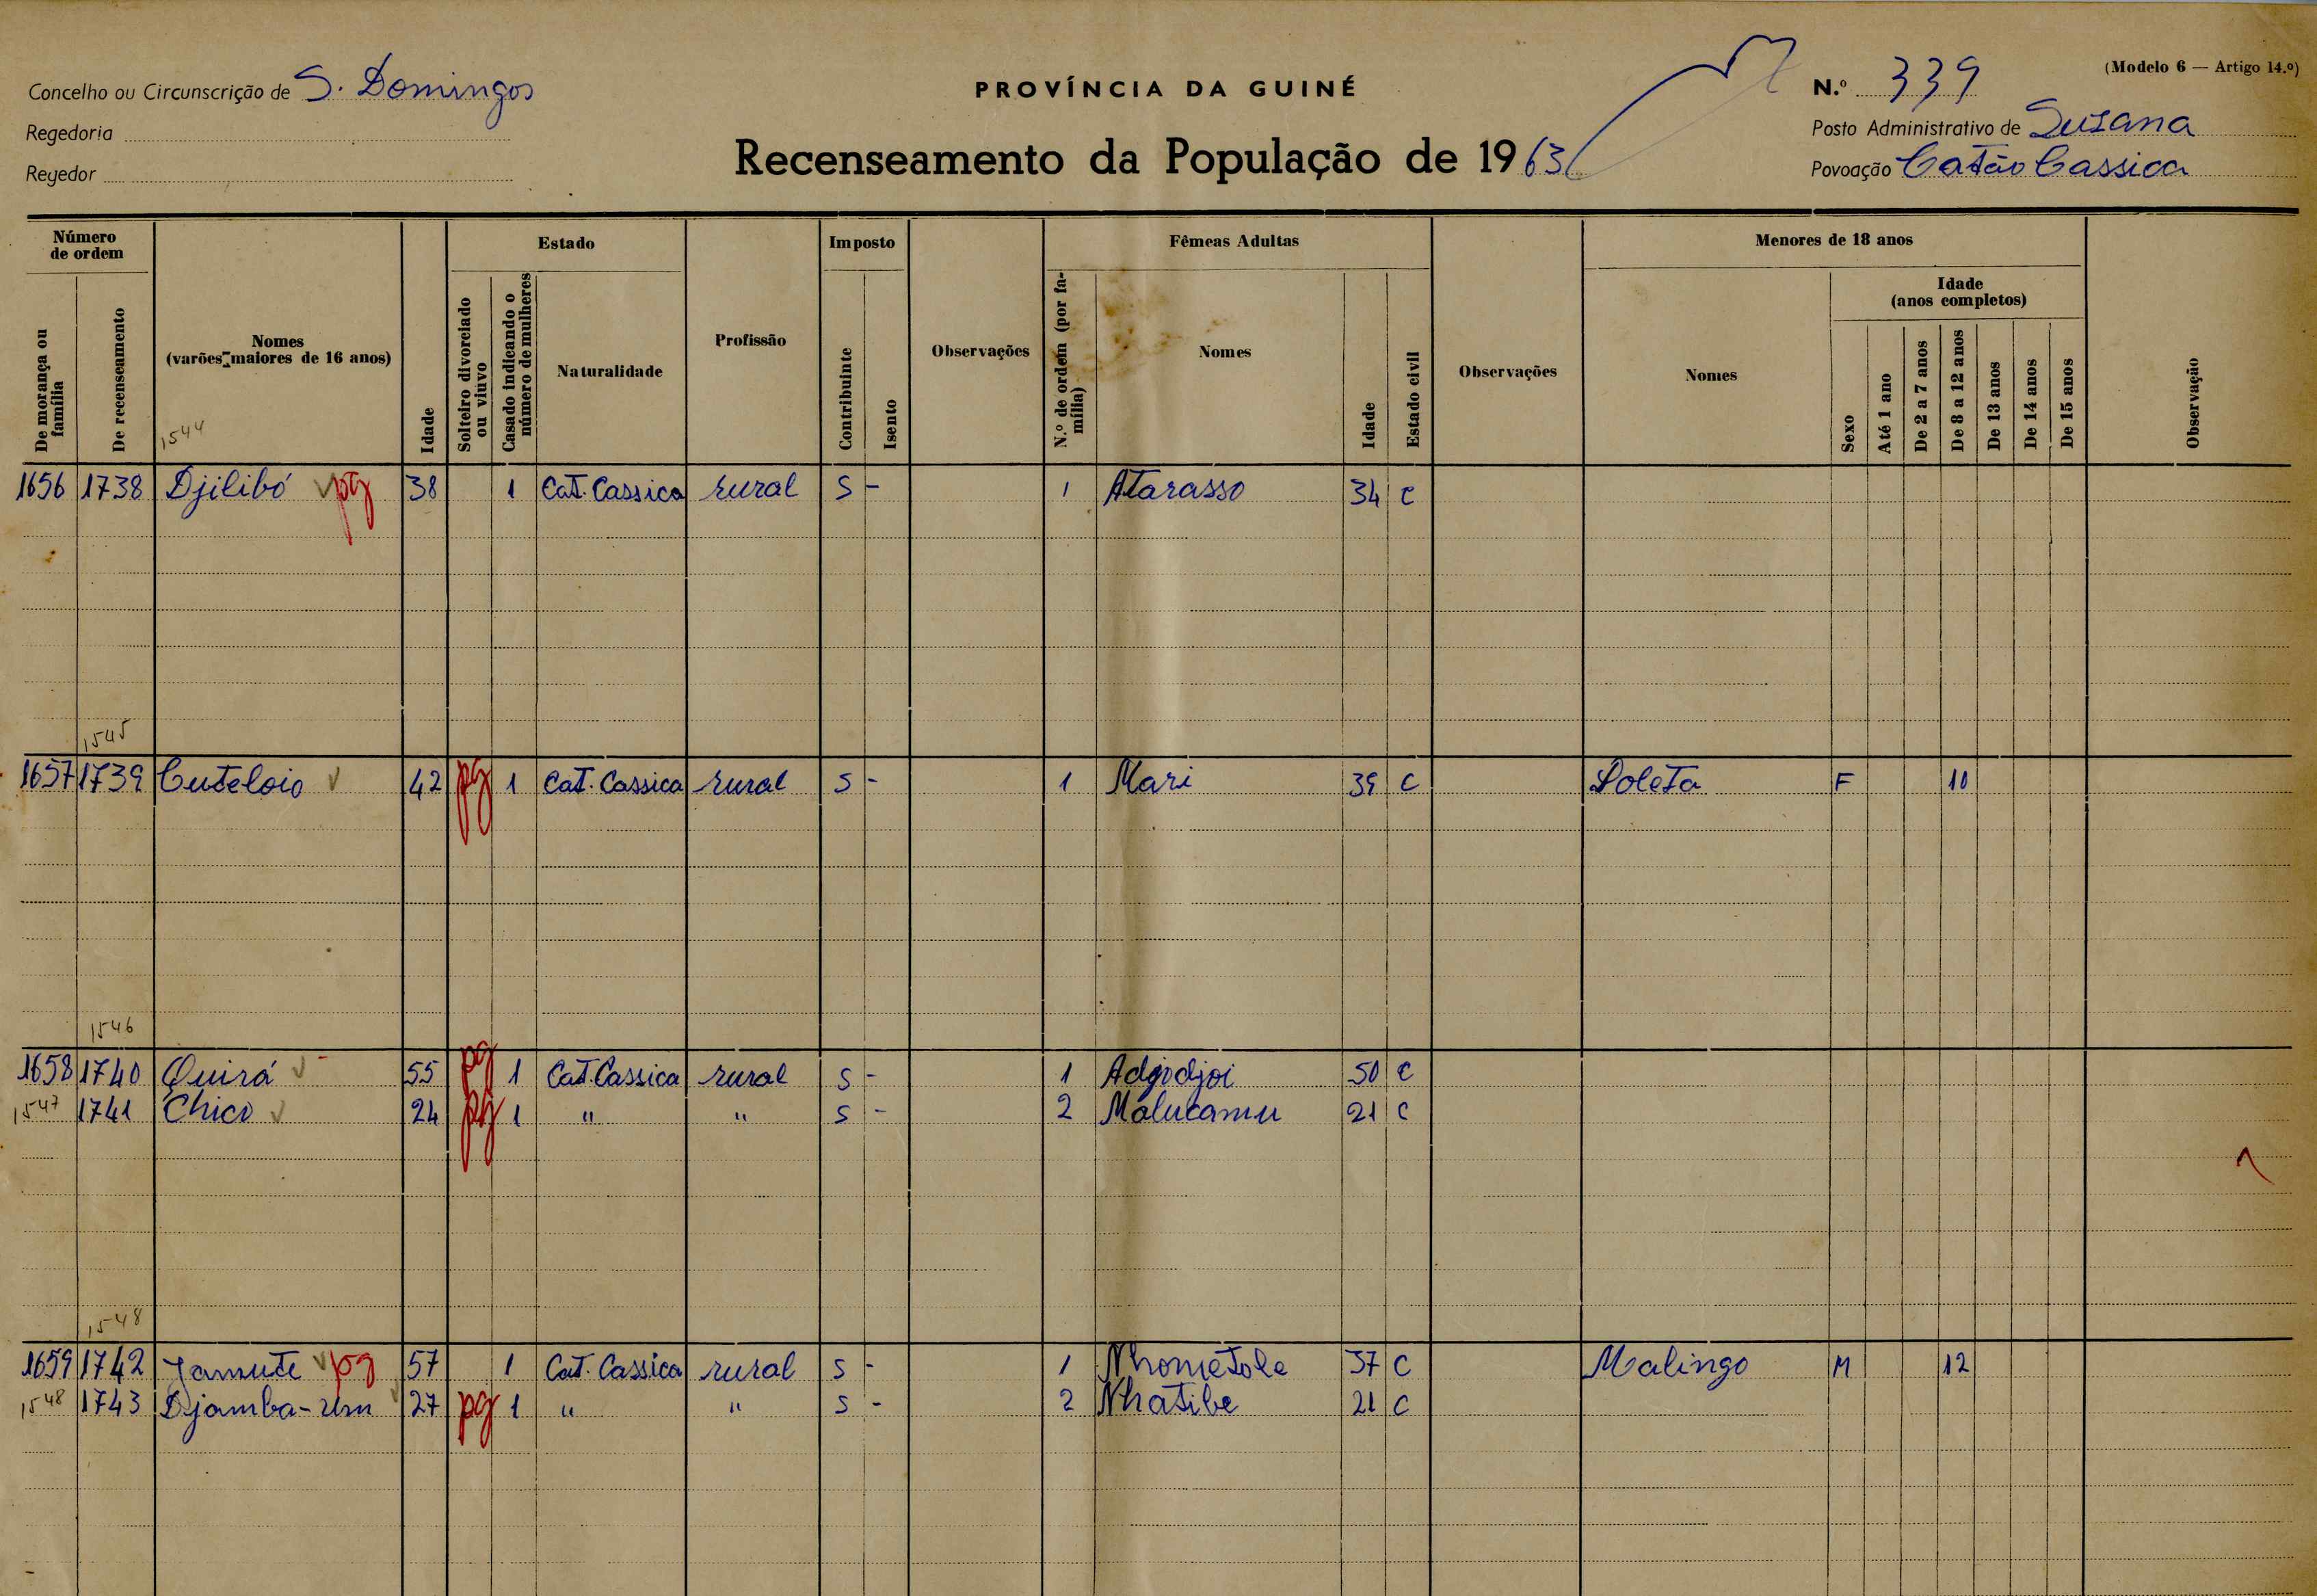 Concelho ou Circunscrição de S. Domingos
Regedoria
Regedor
PROVÍNCIA DA GUINÉ
Recenseamento da População de 1963
(Modelo 6 — Artigo 14.º)
N.º 339
Posto Administrativo de Susana
Povoação Catão Cassica
Número de ordem
De morança ou família
De recenseamento
Nomes (varões maiores de 16 anos)
1544
Idade
Estado
Solteiro divorciado ou viuvo
Casado indicando o número de mulheres
Naturalidade
Profissão
Imposto
Contribuinte
Isento
Observações
Fêmeas Adultas
N.º de ordem (por família)
Nomes
Idade
Estado civil
Observações
Menores de 18 anos
Nomes
Sexo
Idade (anos completos)
Até 1 ano
De 2 a 7 anos
De 8 a 12 anos
De 13 anos
De 14 anos
De 15 anos
Observação
1656 1738 Djilibó pg 38 1 Cat. Cassica rural S - 1 Atarasso 34 C
1545
1657 1739 Cuteloio 42 pg 1 Cat. Cassica rural S - 1 Mari 39 C Soleta F 10
1546
1658 1740 Quirá 55 pg 1 Cat. Cassica rural S - 1 Adjodjoi 50 C
1547 1741 Chico 24 pg 1 " " S - 2 Malucamu 21 C
1548
1659 1742 Jamute pg 57 1 Cat. Cassica rural S - 1 Nhometole 37 C Malingo M 12
1548 1743 Djamba-Um 27 pg 1 " " S - 2 Nhatibe 21 C